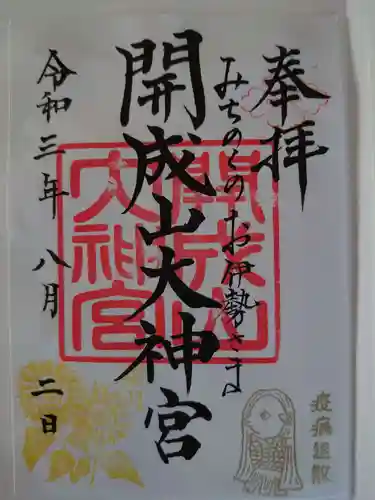 奉拝
みちのくのお伊勢さま
開成山大神宮
令和三年 八月 二日
開成山
大神宮
疫病退散